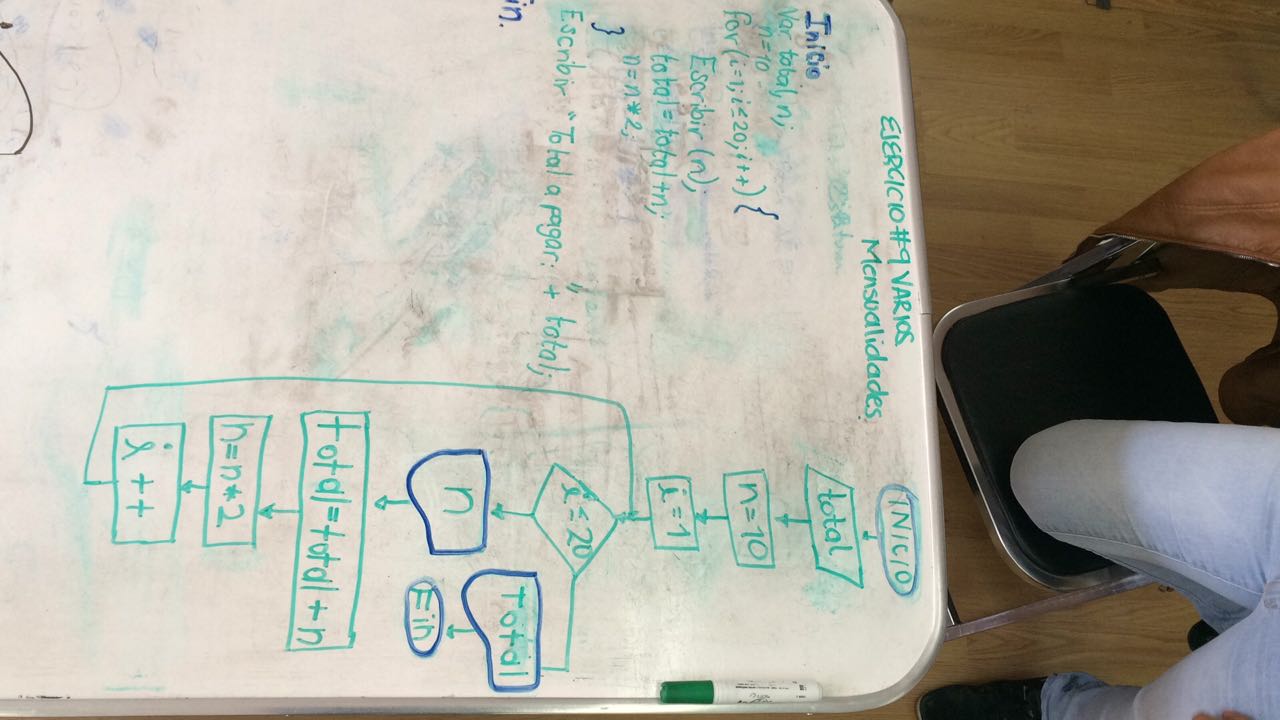 EJERCICIO #9 VARIOS
Mensualidades.
Inicio
Var total, n;
n=10
for(i=1; i≤20; i++) {
Escribir (n);
total=total+n;
n=n*2;
}
Escribir "Total a pagar: " + total;
in.
INICIO
total
n=10
i=1
i≤20
n
total=total+n
n=n*2
i++
Total
Fin